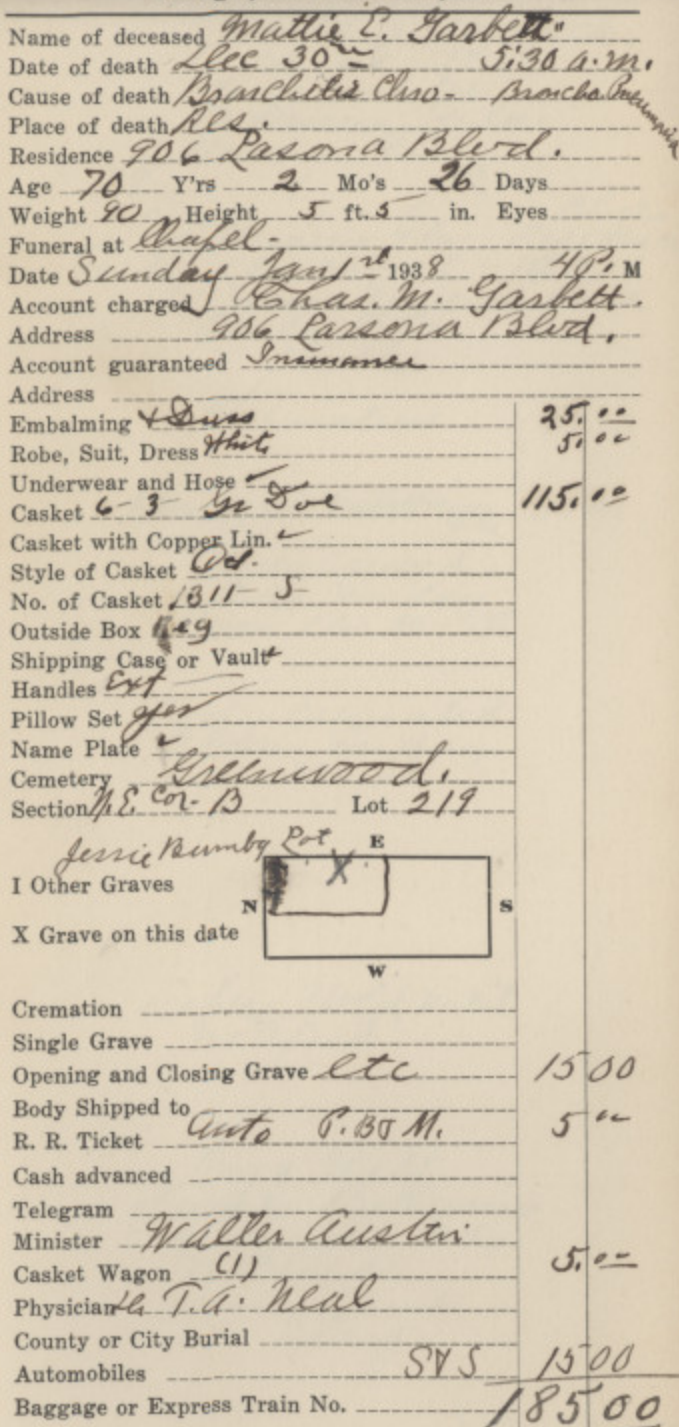 Name of deceased Mattie E. Garbett
Date of death Dec 30th 5:30 a.m.
Cause of death Bronchitis Chro- Broncho Pneumonia
Place of death Res.
Residence 906 Lasona Blvd.
Age 70 Y'rs 2 Mo's 26 Days
Weight 90 Height 5 ft. 5 in. Eyes
Funeral at Chapel-
Date Sunday Jan 1st 1938 4 P. M
Account charged Chas. M. Garbett.
Address 906 Larsona Blvd.
Account guaranteed Insurance
Address
Embalming + Dress 25.00
Robe, Suit, Dress White 5.00
Underwear and Hose ✓
Casket 6-3 Gr Doe 115.00
Casket with Copper Lin. ✓
Style of Casket Oct.
No. of Casket 1311-S
Outside Box Reg
Shipping Case or Vault ✓
Handles Ext
Pillow Set yes
Name Plate ✓
Cemetery Greenwood.
Section N.E. Cor- B Lot 219
Jessie Bumby Lot
E
I Other Graves
N X S
X Grave on this date
W
Cremation
Single Grave
Opening and Closing Grave etc 15 00
Body Shipped to
R. R. Ticket Auto P.B. M. 5 00
Cash advanced
Telegram
Minister Walter Austin
Casket Wagon (1) 5.00
Physician T.A. Neal
County or City Burial
Automobiles 15 00
Baggage or Express Train No. 185 00